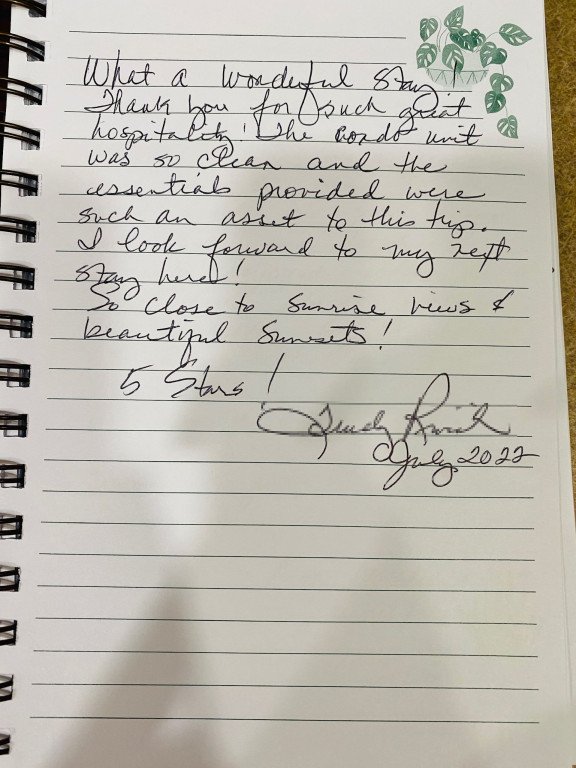 What a wonderful stay
Thank you for such great
hospitality! The condo unit
was so clean and the
essentials provided were
such an asset to this trip.
I look forward to my next
stay here!
So close to sunrise views &
beautiful sunsets!
5 Stars!
July 2022